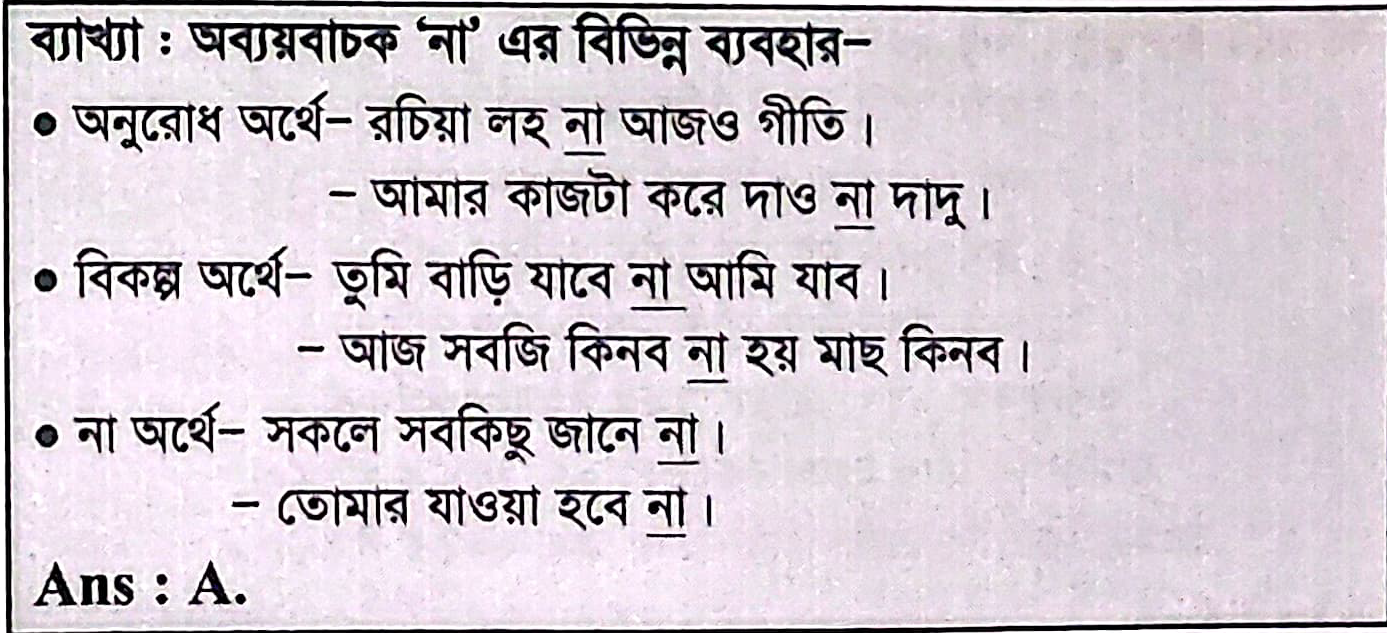 ব্যাখ্যা : অব্যয়বাচক ‘না’ এর বিভিন্ন ব্যবহার–
• অনুরোধ অর্থে– রচিয়া লহ না আজও গীতি।
– আমার কাজটা করে দাও না দাদু।
• বিকল্প অর্থে– তুমি বাড়ি যাবে না আমি যাব।
– আজ সবজি কিনব না হয় মাছ কিনব।
• না অর্থে– সকলে সবকিছু জানে না।
– তোমার যাওয়া হবে না।
Ans : A.